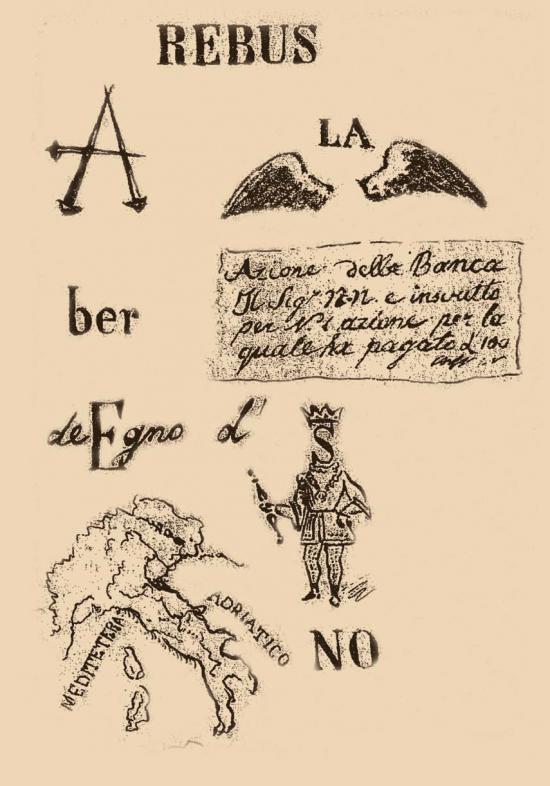 REBUS
A
LA
Azione della Banca
Il Sigr N.N. e inscritto
ber
per N. 1 azione per la
quale ha pagato 100
de E gno d'
S
ADRIATICO
NO